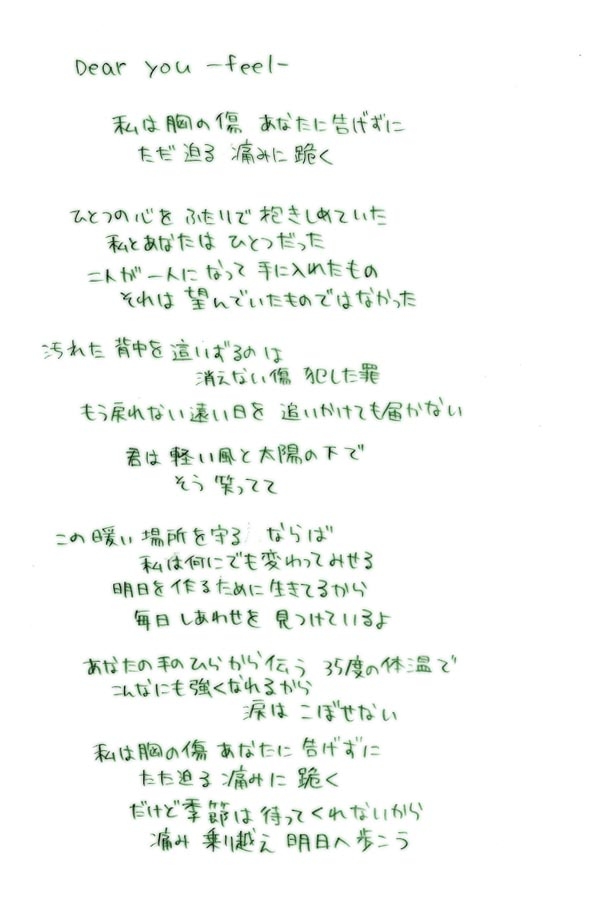 Dear you -feel-
私は胸の傷 あなたに告げずに
ただ迫る 痛みに 跪く
ひとつの心を ふたりで 抱きしめていた
私とあなたは ひとつだった
二人が一人に なって 手に入れたもの
それは 望んでいたものではなかった
汚れた 背中を 這いずるのは
消えない傷 犯した罪
もう戻れない 遠い日を 追いかけても届かない
君は 軽い風と太陽の下で
そう 笑ってて
この暖い 場所を守る ならば
私は何にでも変わってみせる
明日を 作るために 生きてるから
毎日 しあわせを 見つけているよ
あなたの手のひらから伝う 35度の体温で
こんなにも 強くなれるから
涙は こぼせない
私は胸の傷 あなたに 告げずに
ただ迫る 痛みに 跪く
だけど季節は 待ってくれないから
痛み 乗り越え 明日へ歩こう